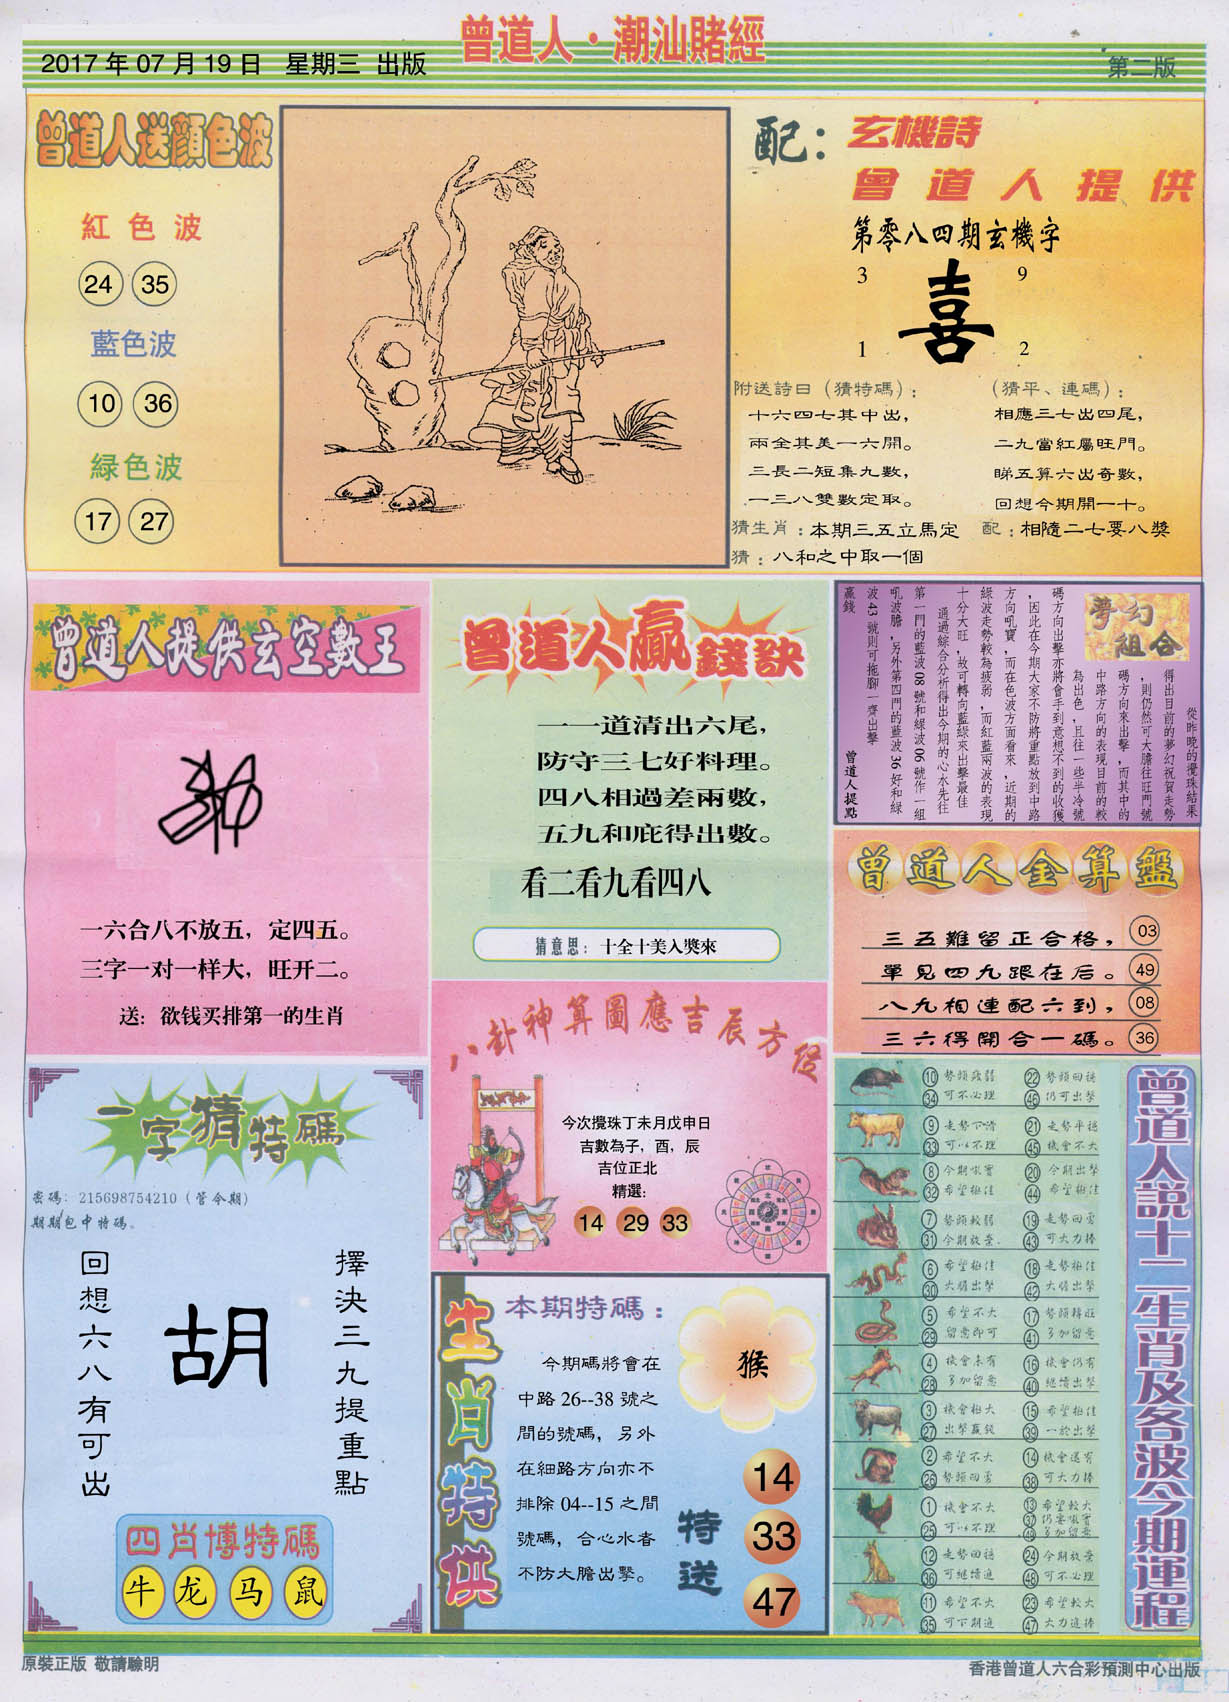 曾道人·潮汕賭經
2017年07月19日 星期三 出版
第二版
曾道人送顏色波
紅色波
24 35
藍色波
10 36
緑色波
17 27
配：玄機詩
曾道人提供
第零八四期玄機字
3 9
喜
1 2
附送詩曰（猜特碼）：
十六四七其中出，
兩全其美一六開。
三長二短集九數，
一三八雙數定取。
（猜平、連碼）：
相應三七出四尾，
二九當紅屬旺門。
睇五算六出奇數，
回想今期開一十。
猜生肖：本期三五立馬定
配：相隨二七要八獎
猜：八和之中取一個
曾道人提供玄空數王
一六合八不放五，定四五。
三字一对一样大，旺开二。
送：欲钱买排第一的生肖
曾道人贏錢訣
一一道清出六尾，
防守三七好料理。
四八相過差兩數，
五九和庇得出數。
看二看九看四八
猜意思：十全十美入獎來
夢幻
組合
從昨晚的攪珠結果
得出目前的夢幻祝賀走勢
，則仍然可大膽往旺門號
碼方向來出擊，而其中的
中路方向的表現目前的較
為出色，且往一些半冷號
碼方向出擊亦將會手到意想不到的收獲
，因此在今期大家不防將重點放到中路
方向吼寶，而在色波方面看來，近期的
綠波走勢較為疲弱，而紅藍兩波的表現
十分大旺，故可轉向藍綠來出擊最佳
通過綜合分析得出今期的心水先往
第一門的藍波08號和綠波06號作一組
吼波膽，另外第四門的藍波36好和綠
波43號則可拖腳一齊出擊
贏錢
曾道人提點
曾道人金算盤
三五難留正合格，03
單見四九跟在后。49
八九相連配六到，08
三六得開合一碼。36
八卦神算圖應吉辰方位
今次攪珠丁未月戊申日
吉數為子，酉，辰
吉位正北
精選：
14 29 33
一字猜特碼
密碼：215698754210（管令期）
期期包中特碼。
擇決三九提重點
胡
回想六八有可出
四肖博特碼
牛 龙 马 鼠
生肖特供
本期特碼：
猴
今期碼將會在
中路26--38號之
間的號碼，另外
在細路方向亦不
排除04--15之間
號碼，合心水者
不防大膽出擊。
特送
14
33
47
曾道人說十二生肖及各波今期運程
10 勢頭疲弱 22 勢頭回穩
34 可不必理 46 仍可出擊
9 走勢下滑 21 走勢平穩
33 可以不理 45 機會不大
8 今期吼寶 20 今期出擊
32 希望極佳 44 希望極佳
7 勢頭較弱 19 走勢回勇
31 今期放棄. 43 可大力捧
6 希望極佳 18 走勢極佳
30 大膽出擊 42 大膽出擊
5 希望不大 17 勢頭轉旺
29 留意即可 41 多加留意
4 機會未有 16 機會仍有
28 多加留意 40 繼續出擊
3 機會極大 15 希望極佳
27 出擊贏錢 39 一於出擊
2 希望不大 14 機會還有
26 勢頭回勇 38 可大力捧
1 機會不大 13 希望較大
37 仍要吼實
25 可以不理 49 多加留意
12 走勢回穩 24 今期放棄
36 可繼續追 48 可不必理
11 希望不大 23 希望較大
35 可下期追 47 大力追捧
原裝正版 敬請驗明
香港曾道人六合彩預測中心出版